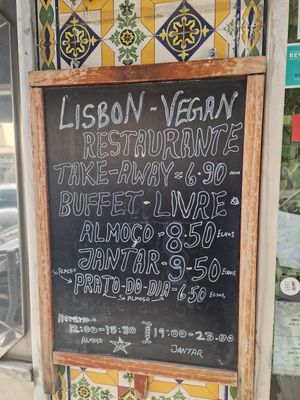 LISBON - VEGAN
RESTAURANTE
TAKE-AWAY = 6.90
BUFFET - LIVRE
ALMOÇO - 8.50 Euros
JANTAR - 9.50 Euros
Só Almoço
PRATO-DO-DIA - 6.50
Só Almoço
Horário
12:00 - 15:30 19:00 - 23:00
ALMOÇO JANTAR